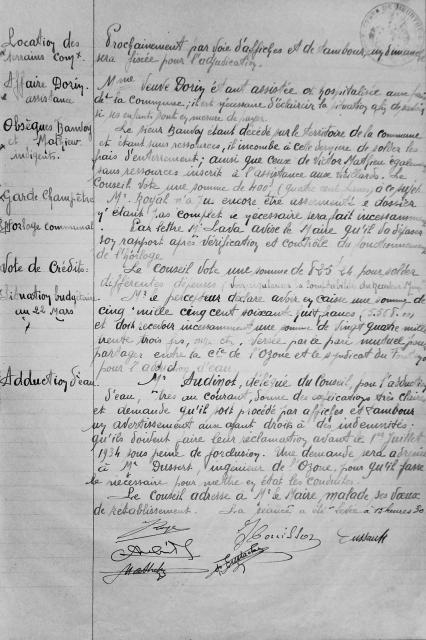 Location des
terrains
Prochainement par voie d'affiches et de tambour, un dimanche
sera fixée pour l'adjudication.
Affaire Dorin,
assistance
Mme Veuve Dorin étant assistée et hospitalisée aux
de la Commune, il est nécessaire d'éclaircir la situation afin de
si ses enfants sont en mesure de payer.
Obsèques
et Mathieu
indigents.
Le sieur étant décédé sur le territoire de la commune
et étant sans ressources, il incombe à cette dernière de solder les
frais d'enterrement; ainsi que ceux de Victor Mathieu également
sans ressources inscrit à l'assistance aux vieillards. Le
Conseil vote une somme de 400f (quatre cent francs) à ce sujet.
Garde Champêtre
Mr Royal n'a pu encore être assermenté, le dossier
n'étant pas complet le nécessaire sera fait incessamment
Horloge communal
Par lettre Mr Lava avise le Maire qu'il va déposer
son rapport après vérification et contrôle du fonctionnement
de l'horloge.
Vote de Crédits:
Le Conseil vote une somme de pour solder
différentes dépenses
Situation budgétaire
au 22 Mars
Mr le percepteur déclare avoir en caisse une somme de
cinq mille cinq cent soixante huit francs (5.568
et doit recevoir incessamment une somme de vingt quatre mille
trente trois frs, versée par le pari mutuel pour
partager entre la Cie de l'Ozone et le syndicat
pour l'adduction d'eau.
Adduction d'eau.
Mr Audinot, délégué du Conseil, pour l'adduction
d'eau, très au courant, donne des explications très claires
et demande qu'il soit procédé par affiches et tambour
un avertissement aux ayant droits à des indemnités
qu'ils doivent faire leur réclamation avant le 1er Juillet
1934 sous peine de forclusion. Une demande sera adressée
à Mr Dussert, ingénieur de l'Ozone, pour qu'il fasse
le nécessaire pour mettre en état les conduites.
Le Conseil adresse à Mr le Maire, malade ses vœux
de rétablissement. La séance a été levée à 15 heures 30